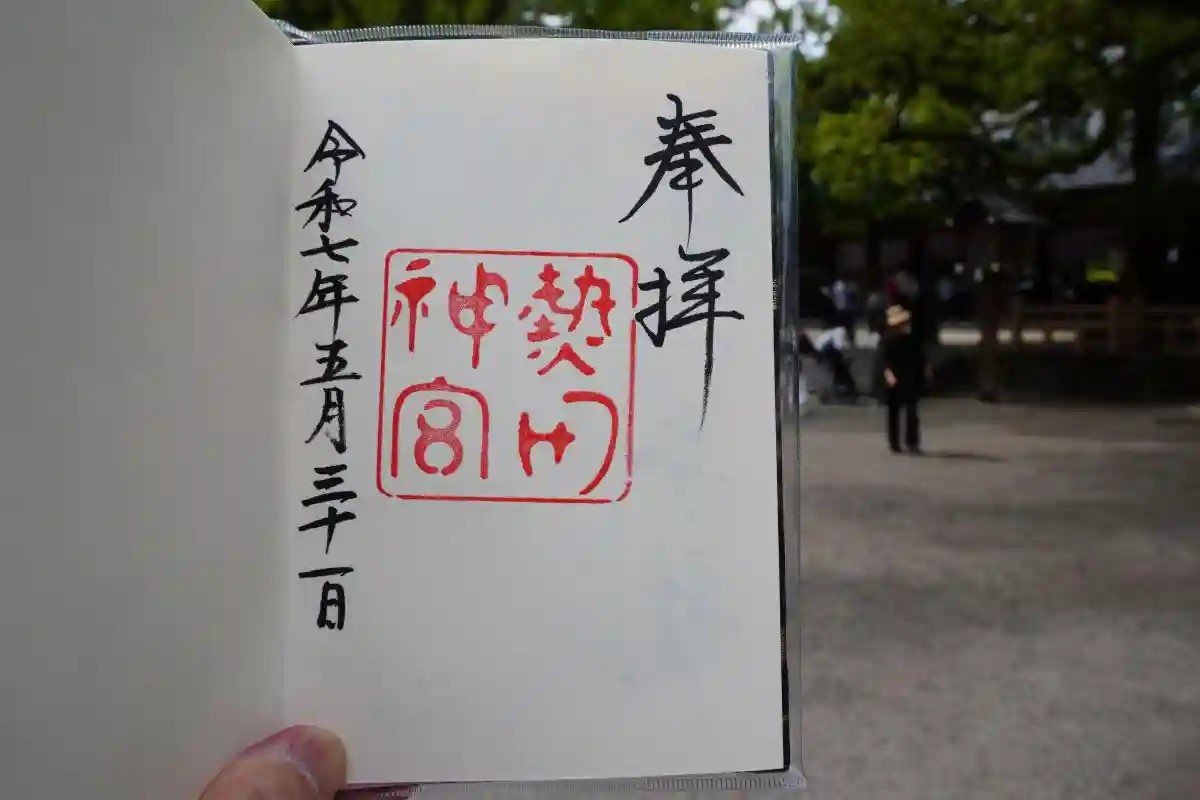 奉拝
熱田
神宮
令和七年五月三十一日